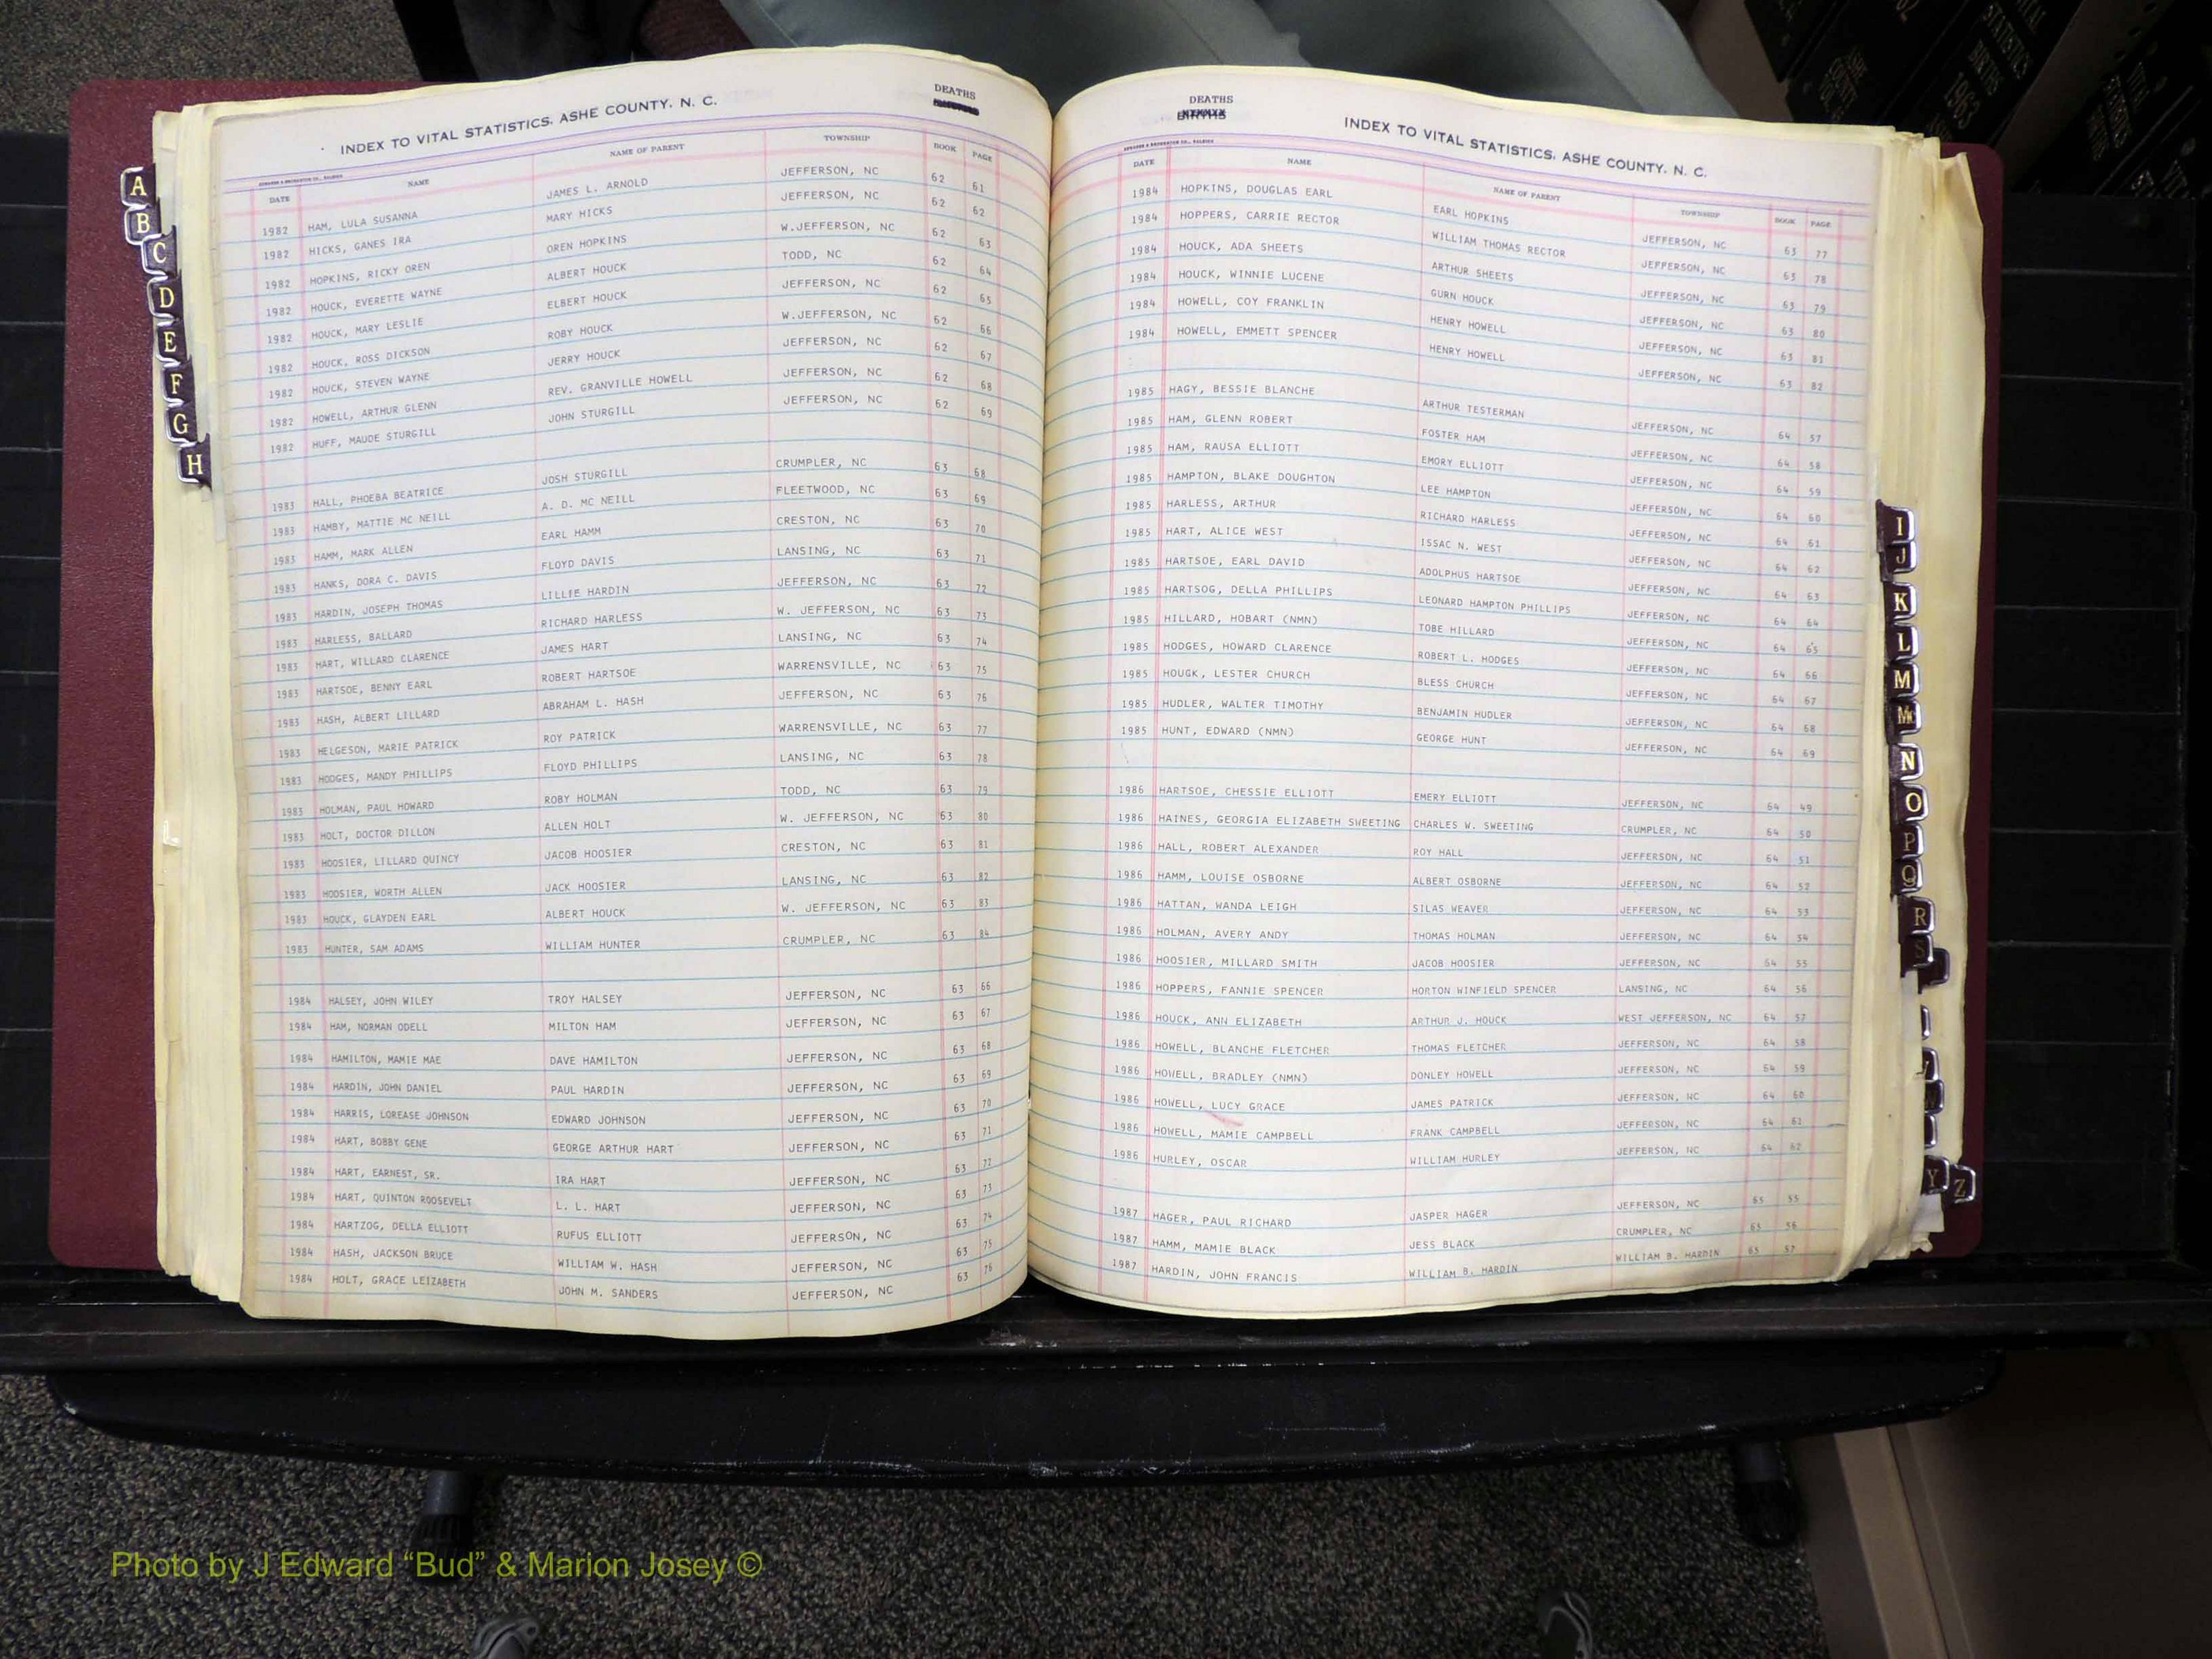 INDEX TO VITAL STATISTICS, ASHE COUNTY, N. C.
DEATHS
DATE NAME NAME OF PARENT TOWNSHIP BOOK PAGE
1982 HAM, LULA SUSANNA JAMES L. ARNOLD JEFFERSON, NC 62 61
1982 HICKS, GANES IRA MARY HICKS JEFFERSON, NC 62 62
1982 HOPKINS, RICKY OREN OREN HOPKINS W.JEFFERSON, NC 62 63
1982 HOUCK, EVERETTE WAYNE ALBERT HOUCK TODD, NC 62 64
1982 HOUCK, MARY LESLIE ELBERT HOUCK JEFFERSON, NC 62 65
1982 HOUCK, ROSS DICKSON ROBY HOUCK W.JEFFERSON, NC 62 66
1982 HOUCK, STEVEN WAYNE JERRY HOUCK JEFFERSON, NC 62 67
1982 HOWELL, ARTHUR GLENN REV. GRANVILLE HOWELL JEFFERSON, NC 62 68
1982 HUFF, MAUDE STURGILL JOHN STURGILL JEFFERSON, NC 62 69
1983 HALL, PHOEBA BEATRICE JOSH STURGILL CRUMPLER, NC 63 68
1983 HAMBY, MATTIE MC NEILL A. D. MC NEILL FLEETWOOD, NC 63 69
1983 HAMM, MARK ALLEN EARL HAMM CRESTON, NC 63 70
1983 HANKS, DORA C. DAVIS FLOYD DAVIS LANSING, NC 63 71
1983 HARDIN, JOSEPH THOMAS LILLIE HARDIN JEFFERSON, NC 63 72
1983 HARLESS, BALLARD RICHARD HARLESS W. JEFFERSON, NC 63 73
1983 HART, WILLARD CLARENCE JAMES HART LANSING, NC 63 74
1983 HARTSOE, BENNY EARL ROBERT HARTSOE WARRENSVILLE, NC 63 75
1983 HASH, ALBERT LILLARD ABRAHAM L. HASH JEFFERSON, NC 63 76
1983 HELGESON, MARIE PATRICK ROY PATRICK WARRENSVILLE, NC 63 77
1983 HODGES, MANDY PHILLIPS FLOYD PHILLIPS LANSING, NC 63 78
1983 HOLMAN, PAUL HOWARD ROBY HOLMAN TODD, NC 63 79
1983 HOLT, DOCTOR DILLON ALLEN HOLT W. JEFFERSON, NC 63 80
1983 HOOSIER, LILLARD QUINCY JACOB HOOSIER CRESTON, NC 63 81
1983 HOOSIER, WORTH ALLEN JACK HOOSIER LANSING, NC 63 82
1983 HOUCK, GLAYDEN EARL ALBERT HOUCK W. JEFFERSON, NC 63 83
1983 HUNTER, SAM ADAMS WILLIAM HUNTER CRUMPLER, NC 63 84
1984 HALSEY, JOHN WILEY TROY HALSEY JEFFERSON, NC 63 66
1984 HAM, NORMAN ODELL MILTON HAM JEFFERSON, NC 63 67
1984 HAMILTON, MAMIE MAE DAVE HAMILTON JEFFERSON, NC 63 68
1984 HARDIN, JOHN DANIEL PAUL HARDIN JEFFERSON, NC 63 69
1984 HARRIS, LOREASE JOHNSON EDWARD JOHNSON JEFFERSON, NC 63 70
1984 HART, BOBBY GENE GEORGE ARTHUR HART JEFFERSON, NC 63 71
1984 HART, EARNEST, SR. IRA HART JEFFERSON, NC 63 72
1984 HART, QUINTON ROOSEVELT L. L. HART JEFFERSON, NC 63 73
1984 HARTZOG, DELLA ELLIOTT RUFUS ELLIOTT JEFFERSON, NC 63 74
1984 HASH, JACKSON BRUCE WILLIAM W. HASH JEFFERSON, NC 63 75
1984 HOLT, GRACE LEIZABETH JOHN M. SANDERS JEFFERSON, NC 63 76
DEATHS
INDEX TO VITAL STATISTICS, ASHE COUNTY, N. C.
DATE NAME NAME OF PARENT TOWNSHIP BOOK PAGE
1984 HOPKINS, DOUGLAS EARL EARL HOPKINS JEFFERSON, NC 63 77
1984 HOPPERS, CARRIE RECTOR WILLIAM THOMAS RECTOR JEFFERSON, NC 63 78
1984 HOUCK, ADA SHEETS ARTHUR SHEETS JEFFERSON, NC 63 79
1984 HOUCK, WINNIE LUCENE GURN HOUCK JEFFERSON, NC 63 80
1984 HOWELL, COY FRANKLIN HENRY HOWELL JEFFERSON, NC 63 81
1984 HOWELL, EMMETT SPENCER HENRY HOWELL JEFFERSON, NC 63 82
1985 HAGY, BESSIE BLANCHE ARTHUR TESTERMAN JEFFERSON, NC 64 57
1985 HAM, GLENN ROBERT FOSTER HAM JEFFERSON, NC 64 58
1985 HAM, RAUSA ELLIOTT EMORY ELLIOTT JEFFERSON, NC 64 59
1985 HAMPTON, BLAKE DOUGHTON LEE HAMPTON JEFFERSON, NC 64 60
1985 HARLESS, ARTHUR RICHARD HARLESS JEFFERSON, NC 64 61
1985 HART, ALICE WEST ISSAC N. WEST JEFFERSON, NC 64 62
1985 HARTSOE, EARL DAVID ADOLPHUS HARTSOE JEFFERSON, NC 64 63
1985 HARTSOG, DELLA PHILLIPS LEONARD HAMPTON PHILLIPS JEFFERSON, NC 64 64
1985 HILLARD, HOBART (NMN) TOBE HILLARD JEFFERSON, NC 64 65
1985 HODGES, HOWARD CLARENCE ROBERT L. HODGES JEFFERSON, NC 64 66
1985 HOUGK, LESTER CHURCH BLESS CHURCH JEFFERSON, NC 64 67
1985 HUDLER, WALTER TIMOTHY BENJAMIN HUDLER JEFFERSON, NC 64 68
1985 HUNT, EDWARD (NMN) GEORGE HUNT JEFFERSON, NC 64 69
1986 HARTSOE, CHESSIE ELLIOTT EMERY ELLIOTT JEFFERSON, NC 64 49
1986 HAINES, GEORGIA ELIZABETH SWEETING CHARLES W. SWEETING CRUMPLER, NC 64 50
1986 HALL, ROBERT ALEXANDER ROY HALL JEFFERSON, NC 64 51
1986 HAMM, LOUISE OSBORNE ALBERT OSBORNE JEFFERSON, NC 64 52
1986 HATTAN, WANDA LEIGH SILAS WEAVER JEFFERSON, NC 64 53
1986 HOLMAN, AVERY ANDY THOMAS HOLMAN JEFFERSON, NC 64 54
1986 HOOSIER, MILLARD SMITH JACOB HOOSIER JEFFERSON, NC 64 55
1986 HOPPERS, FANNIE SPENCER HORTON WINFIELD SPENCER LANSING, NC 64 56
1986 HOUCK, ANN ELIZABETH ARTHUR J. HOUCK WEST JEFFERSON, NC 64 57
1986 HOWELL, BLANCHE FLETCHER THOMAS FLETCHER JEFFERSON, NC 64 58
1986 HOWELL, BRADLEY (NMN) DONLEY HOWELL JEFFERSON, NC 64 59
1986 HOWELL, LUCY GRACE JAMES PATRICK JEFFERSON, NC 64 60
1986 HOWELL, MAMIE CAMPBELL FRANK CAMPBELL JEFFERSON, NC 64 61
1986 HURLEY, OSCAR WILLIAM HURLEY JEFFERSON, NC 64 62
1987 HAGER, PAUL RICHARD JASPER HAGER JEFFERSON, NC 65 55
1987 HAMM, MAMIE BLACK JESS BLACK CRUMPLER, NC 65 56
1987 HARDIN, JOHN FRANCIS WILLIAM B. HARDIN WILLIAM B. HARDIN 65 57
A
B
C
D
E
F
G
H
I
J
K
L
M
Mc
N
O
P
Q
R
S
Y
Z
VITAL STATISTICS
BIRTHS
1963
ASHE
Photo by J Edward “Bud” & Marion Josey ©